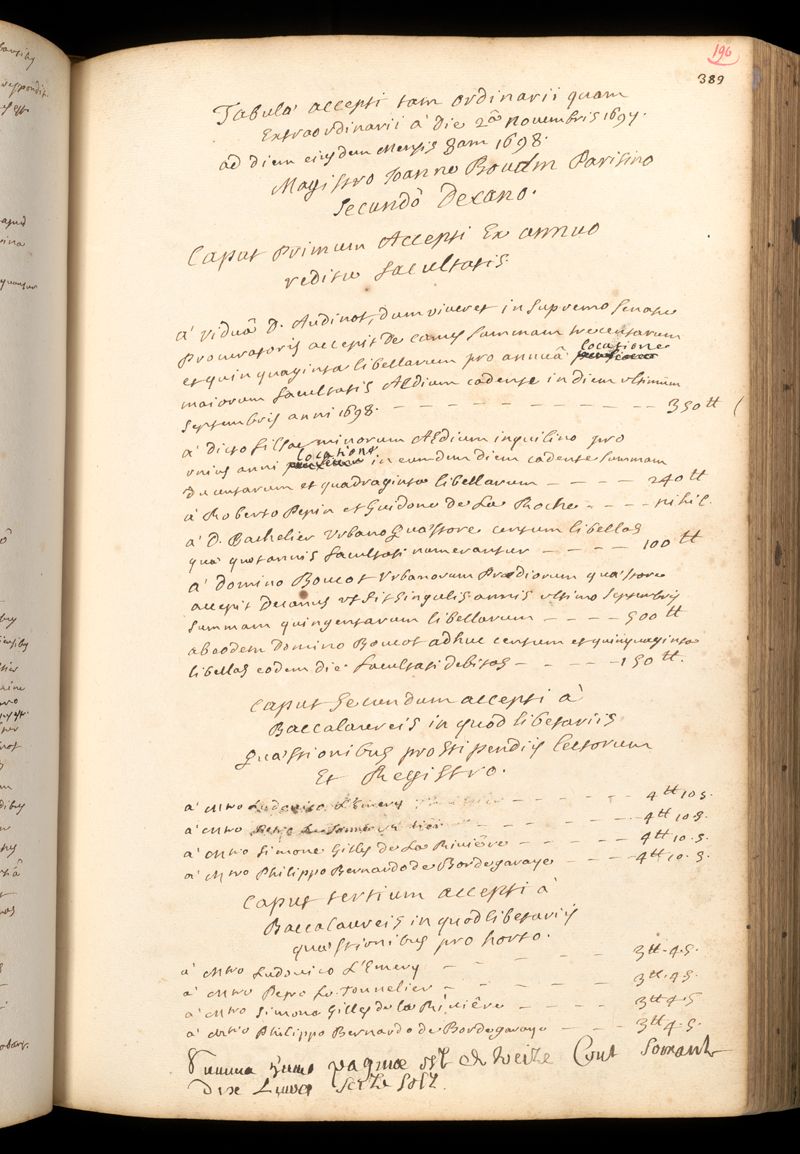 196
389
Tabula accepti tam ordinarii quam
Extraordinarii a' die 2â Novembris 1697.
ad diem eiusdem Mensis 8am 1698.
Magistro Joanne Boudin Parisino
Secundò Decano.
Caput Primum Accepti Ex annuo
reditu facultatis.
a' viduâ D. Audinot, dum viveret in supremo senatu
Procuratoris accepit Decanus summam trecentarum
et quinquaginta libellarum pro annuâ locatione
maiorum facultatis Ædium cadente in diem ultimum
Septembris anni 1698. — — — — — — — — 350 tt
a' dicto fillae minorum Ædium inquilino pro
unius anni locatione in eumdem diem cadente summam
Ducentarum et quadraginta libellarum — — — — 240 tt
a' Roberto Pepin et Guidone De La Roche - - - - nihil.
a' D. Bachelier Urbano Quæstore centum libellas
quæ quotannis facultati numerantur — — — — 100 tt
a' Domino Boucot Urbanorum Prædiorum quæstore
accepit Decanus ut fit singulis annis ultimo Septembris
summam quingentarum libellarum — — — — 500 tt
ab eodem Domino Boucot adhuc centum et quinquaginta
libellas eodem die facultati debitas — — — — 150 tt.
Caput Secundum accepti a'
Baccalaureis in quodlibetariis
Quæstionibus pro Stipendiis Lectorum
Et Registro.
a' Mtro Ludovico L'Emery — — — — 4 tt 10 s.
a' Mtro — — — 4 tt 10 s.
a' Mtro Simone Gilles de La Riviêre — — — 4 tt 10. s.
a' Mtro Philippo Bernardo de Bordegaraye — — — 4 tt 10. s.
Caput tertium accepti a'
Baccalaureis in quodlibetariis
quæstionibus pro horto.
a' Mtro Ludovico L'Emery — — — 3 tt. 4. s.
a' Mtro Petro Le Tonnelier — — — 3 tt. 4 s.
a' Mtro Simone Gilles de la Riviêre — — — 3 tt 4. s
a' Mtro Philippo Bernardo de Bordegaraye — — — 3 tt 4. s.
Summa hujus paginæ est de treize Cent Soixante
dix Livres seize solz.